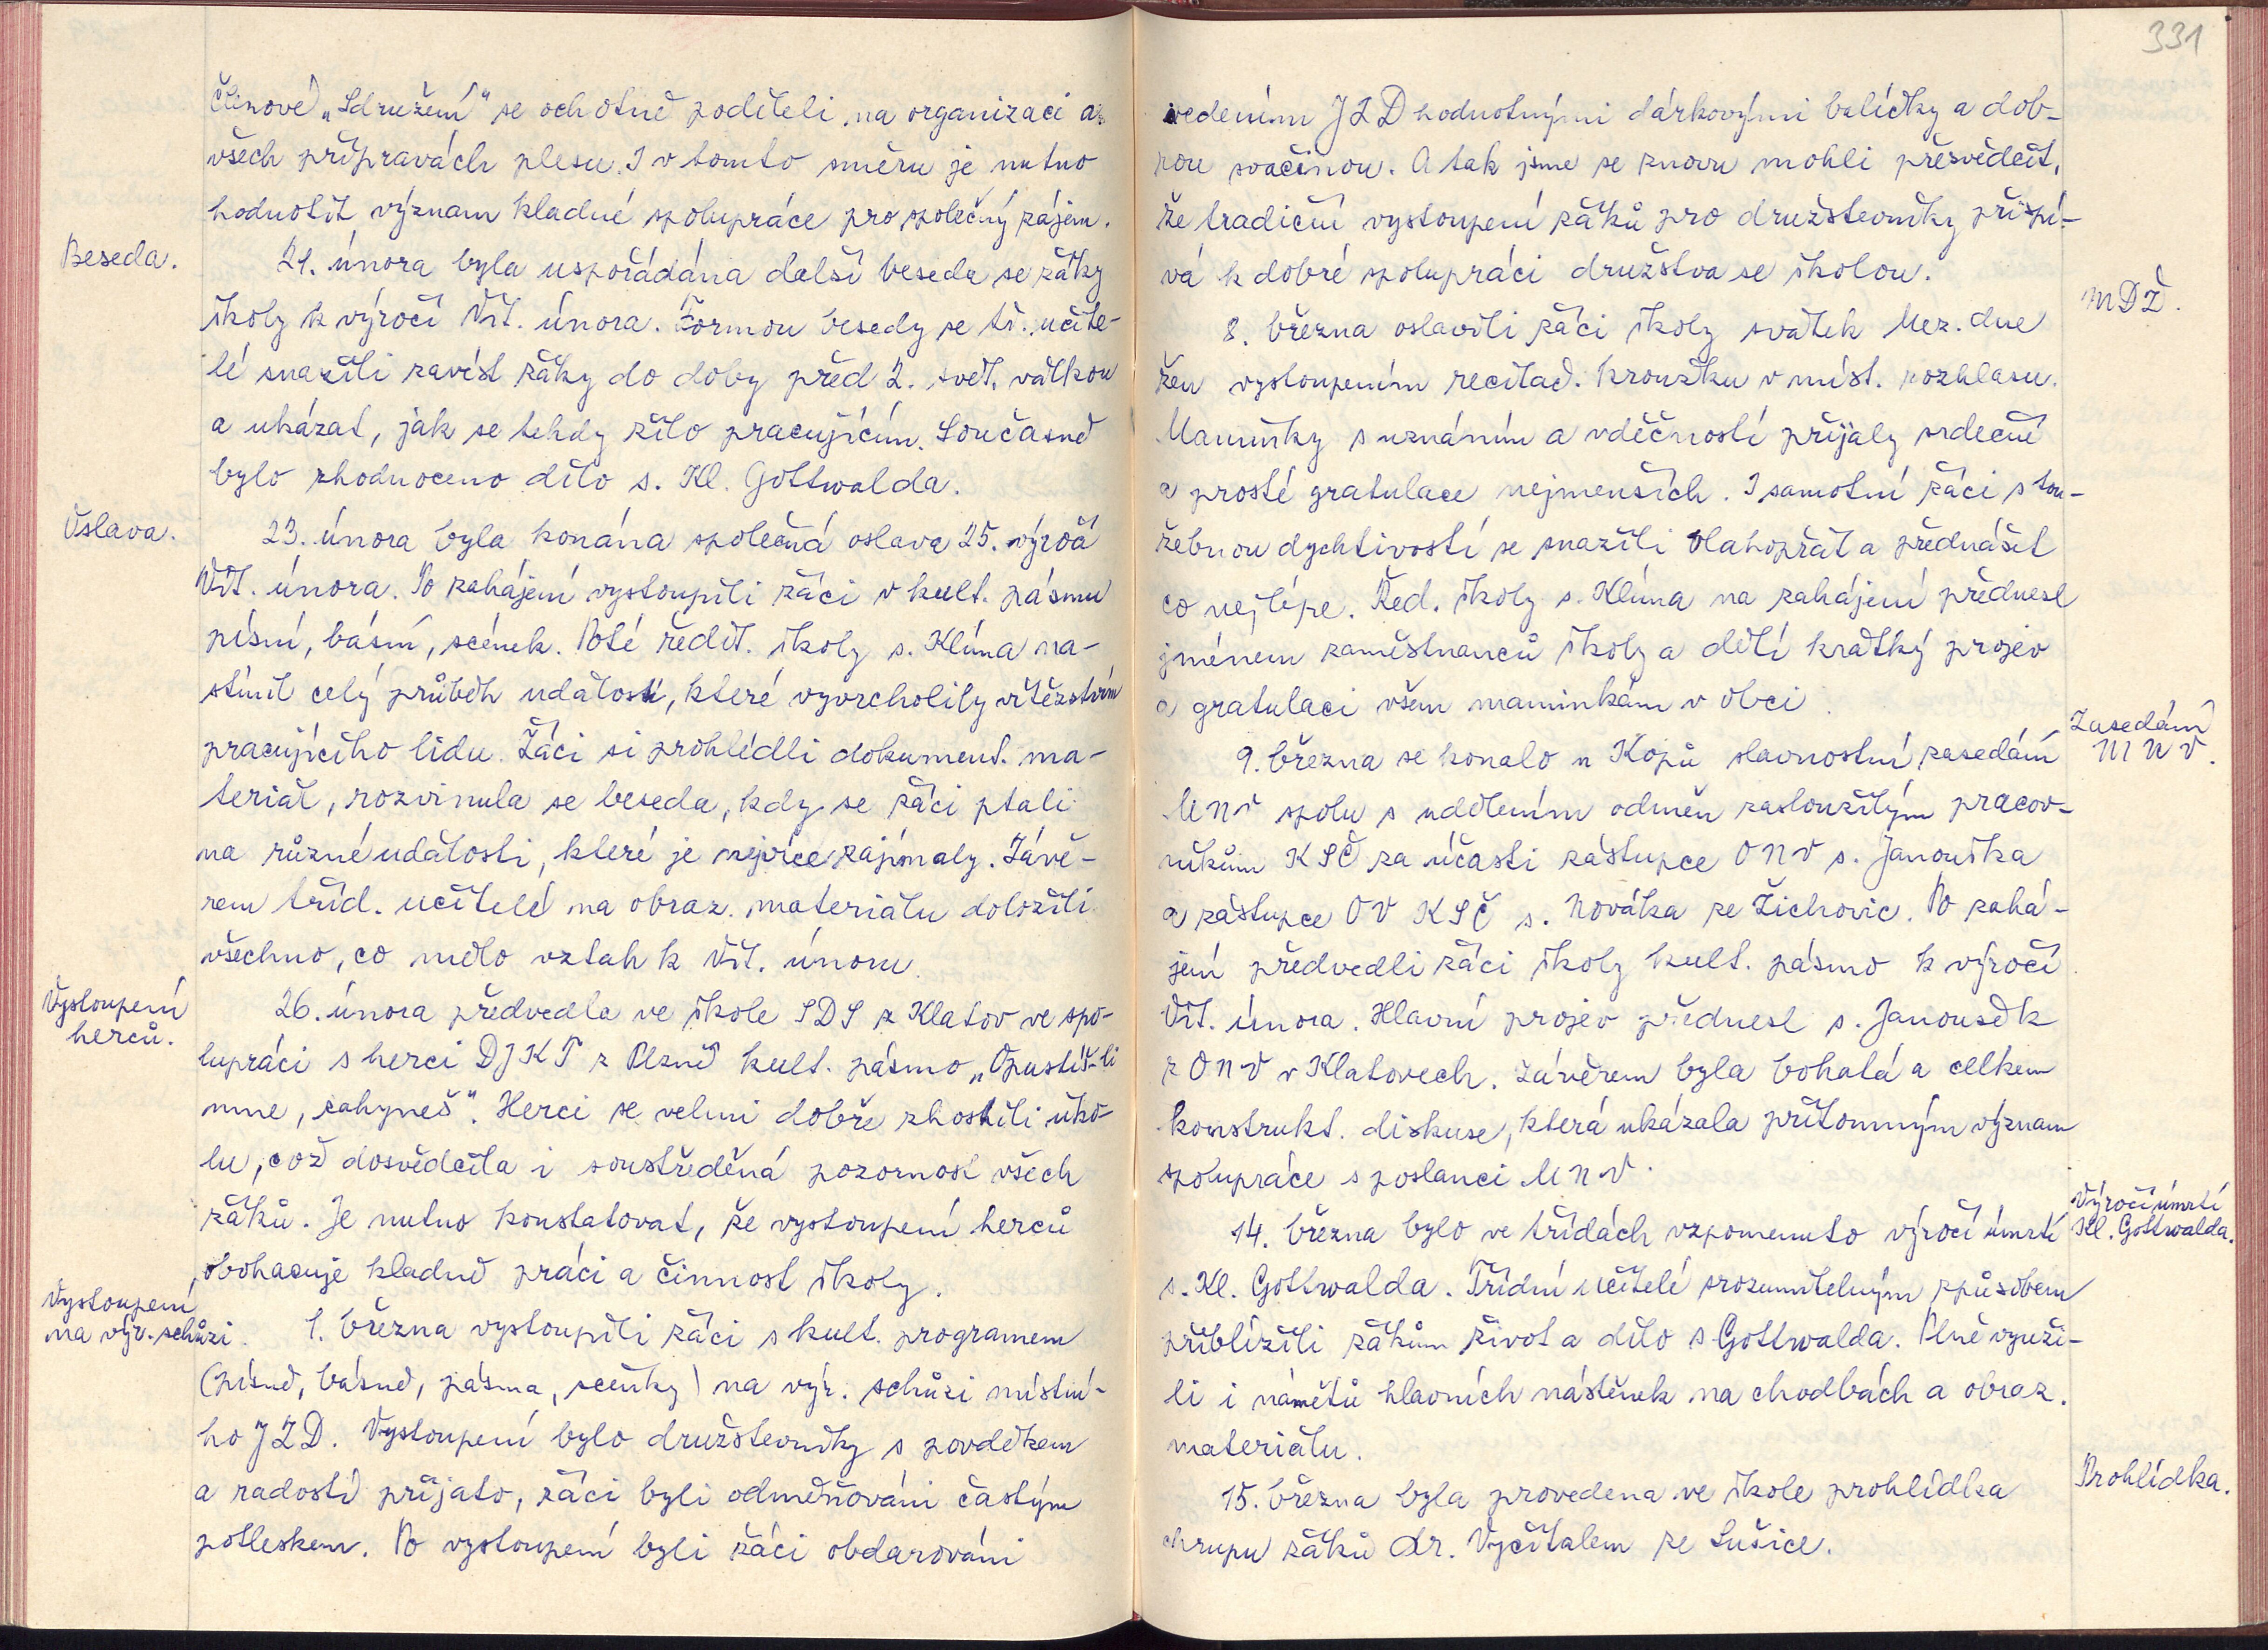 Členové „Sdružení" se ochotně podíleli na organizaci a
všech přípravách plesu. I v tomto směru je nutno
hodnotit význam kladné spolupráce pro společný zájem.
Beseda.
21. února byla uspořádána další beseda se žáky
školy k výročí Vít. února. Formou besedy se tř. učite-
lé snažili zavést žáky do doby před 2. svět. válkou
a ukázat, jak se tehdy žilo pracujícím. Současně
bylo zhodnoceno dílo s. Kl. Gottwalda.
Oslava.
23. února byla konána společná oslava 25. výročí
Vít. února. Po zahájení vystoupili žáci v kult. pásmu
písní, básní, scének. Poté ředit. školy s. Klíma na-
stínil celý průběh událostí, které vyvrcholily vítězstvím
pracujícího lidu. Žáci si prohlédli dokument. ma-
teriál, rozvinula se beseda, kdy se žáci ptali
na různé události, které je nejvíce zajímaly. Závě-
rem tříd. učitelé na obraz. materiálu doložili
všechno, co mělo vztah k Vít. únoru.
Vystoupení
herců.
26. února předvedla ve škole SDS z Klatov ve spo-
lupráci s herci DJKT z Plzně kult. pásmo „Opustíš-li
mne, zahyneš". Herci se velmi dobře zhostili úko-
lu, což dosvědčila i soustředěná pozornost všech
žáků. Je nutno konstatovat, že vystoupení herců
obohacuje kladně práci a činnost školy.
Vystoupení
na výr. schůzi.
1. března vystoupili žáci s kult. programem
(písně, básně, pásma, scénky) na výr. schůzi místní-
ho JZD. Vystoupení bylo družstevníky s povděkem
a radostí přijato, žáci byli odměňováni častým
potleskem. Po vystoupení byli žáci obdarováni
331
vedením JZD hodnotnými dárkovými balíčky a dob-
rou svačinou. A tak jsme se znovu mohli přesvědčit,
že tradiční vystoupení žáků pro družstevníky přispí-
vá k dobré spolupráci družstva se školou.
MDŽ.
8. března oslavili žáci školy svátek Mez. dne
žen vystoupením recitač. kroužku v míst. rozhlasu.
Maminky s uznáním a vděčností přijaly srdečné
a prosté gratulace nejmenších. I samotní žáci s tou-
žebnou dychtivostí se snažili blahopřát a přednášet
co nejlépe. Řed. školy s. Klíma na zahájení přednesl
jménem zaměstnanců školy a dětí krátký projev
a gratulaci všem maminkám v obci.
Zasedání
MNV.
9. března se konalo u Kopů slavnostní zasedání
MNV spolu s udělením odměn zasloužilým pracov-
níkům KSČ za účasti zástupce ONV s. Janouška
a zástupce OV KSČ s. Nováka ze Žichovic. Po zahá-
jení předvedli žáci školy kult. pásmo k výročí
Vít. února. Hlavní projev přednesl s. Janoušek
z ONV v Klatovech. Závěrem byla bohatá a celkem
konstrukt. diskuse, která ukázala přítomným význam
spolupráce s poslanci MNV.
Výročí úmrtí
Kl. Gottwalda.
14. března bylo ve třídách vzpomenuto výročí úmrtí
s. Kl. Gottwalda. Třídní učitelé srozumitelným způsobem
přiblížili žákům život a dílo s. Gottwalda. Plně využi-
li i námětů hlavních nástěnek na chodbách a obraz.
materiálu.
Prohlídka.
15. března byla provedena ve škole prohlídka
chrupu žáků dr. Vyčítalem ze Sušice.